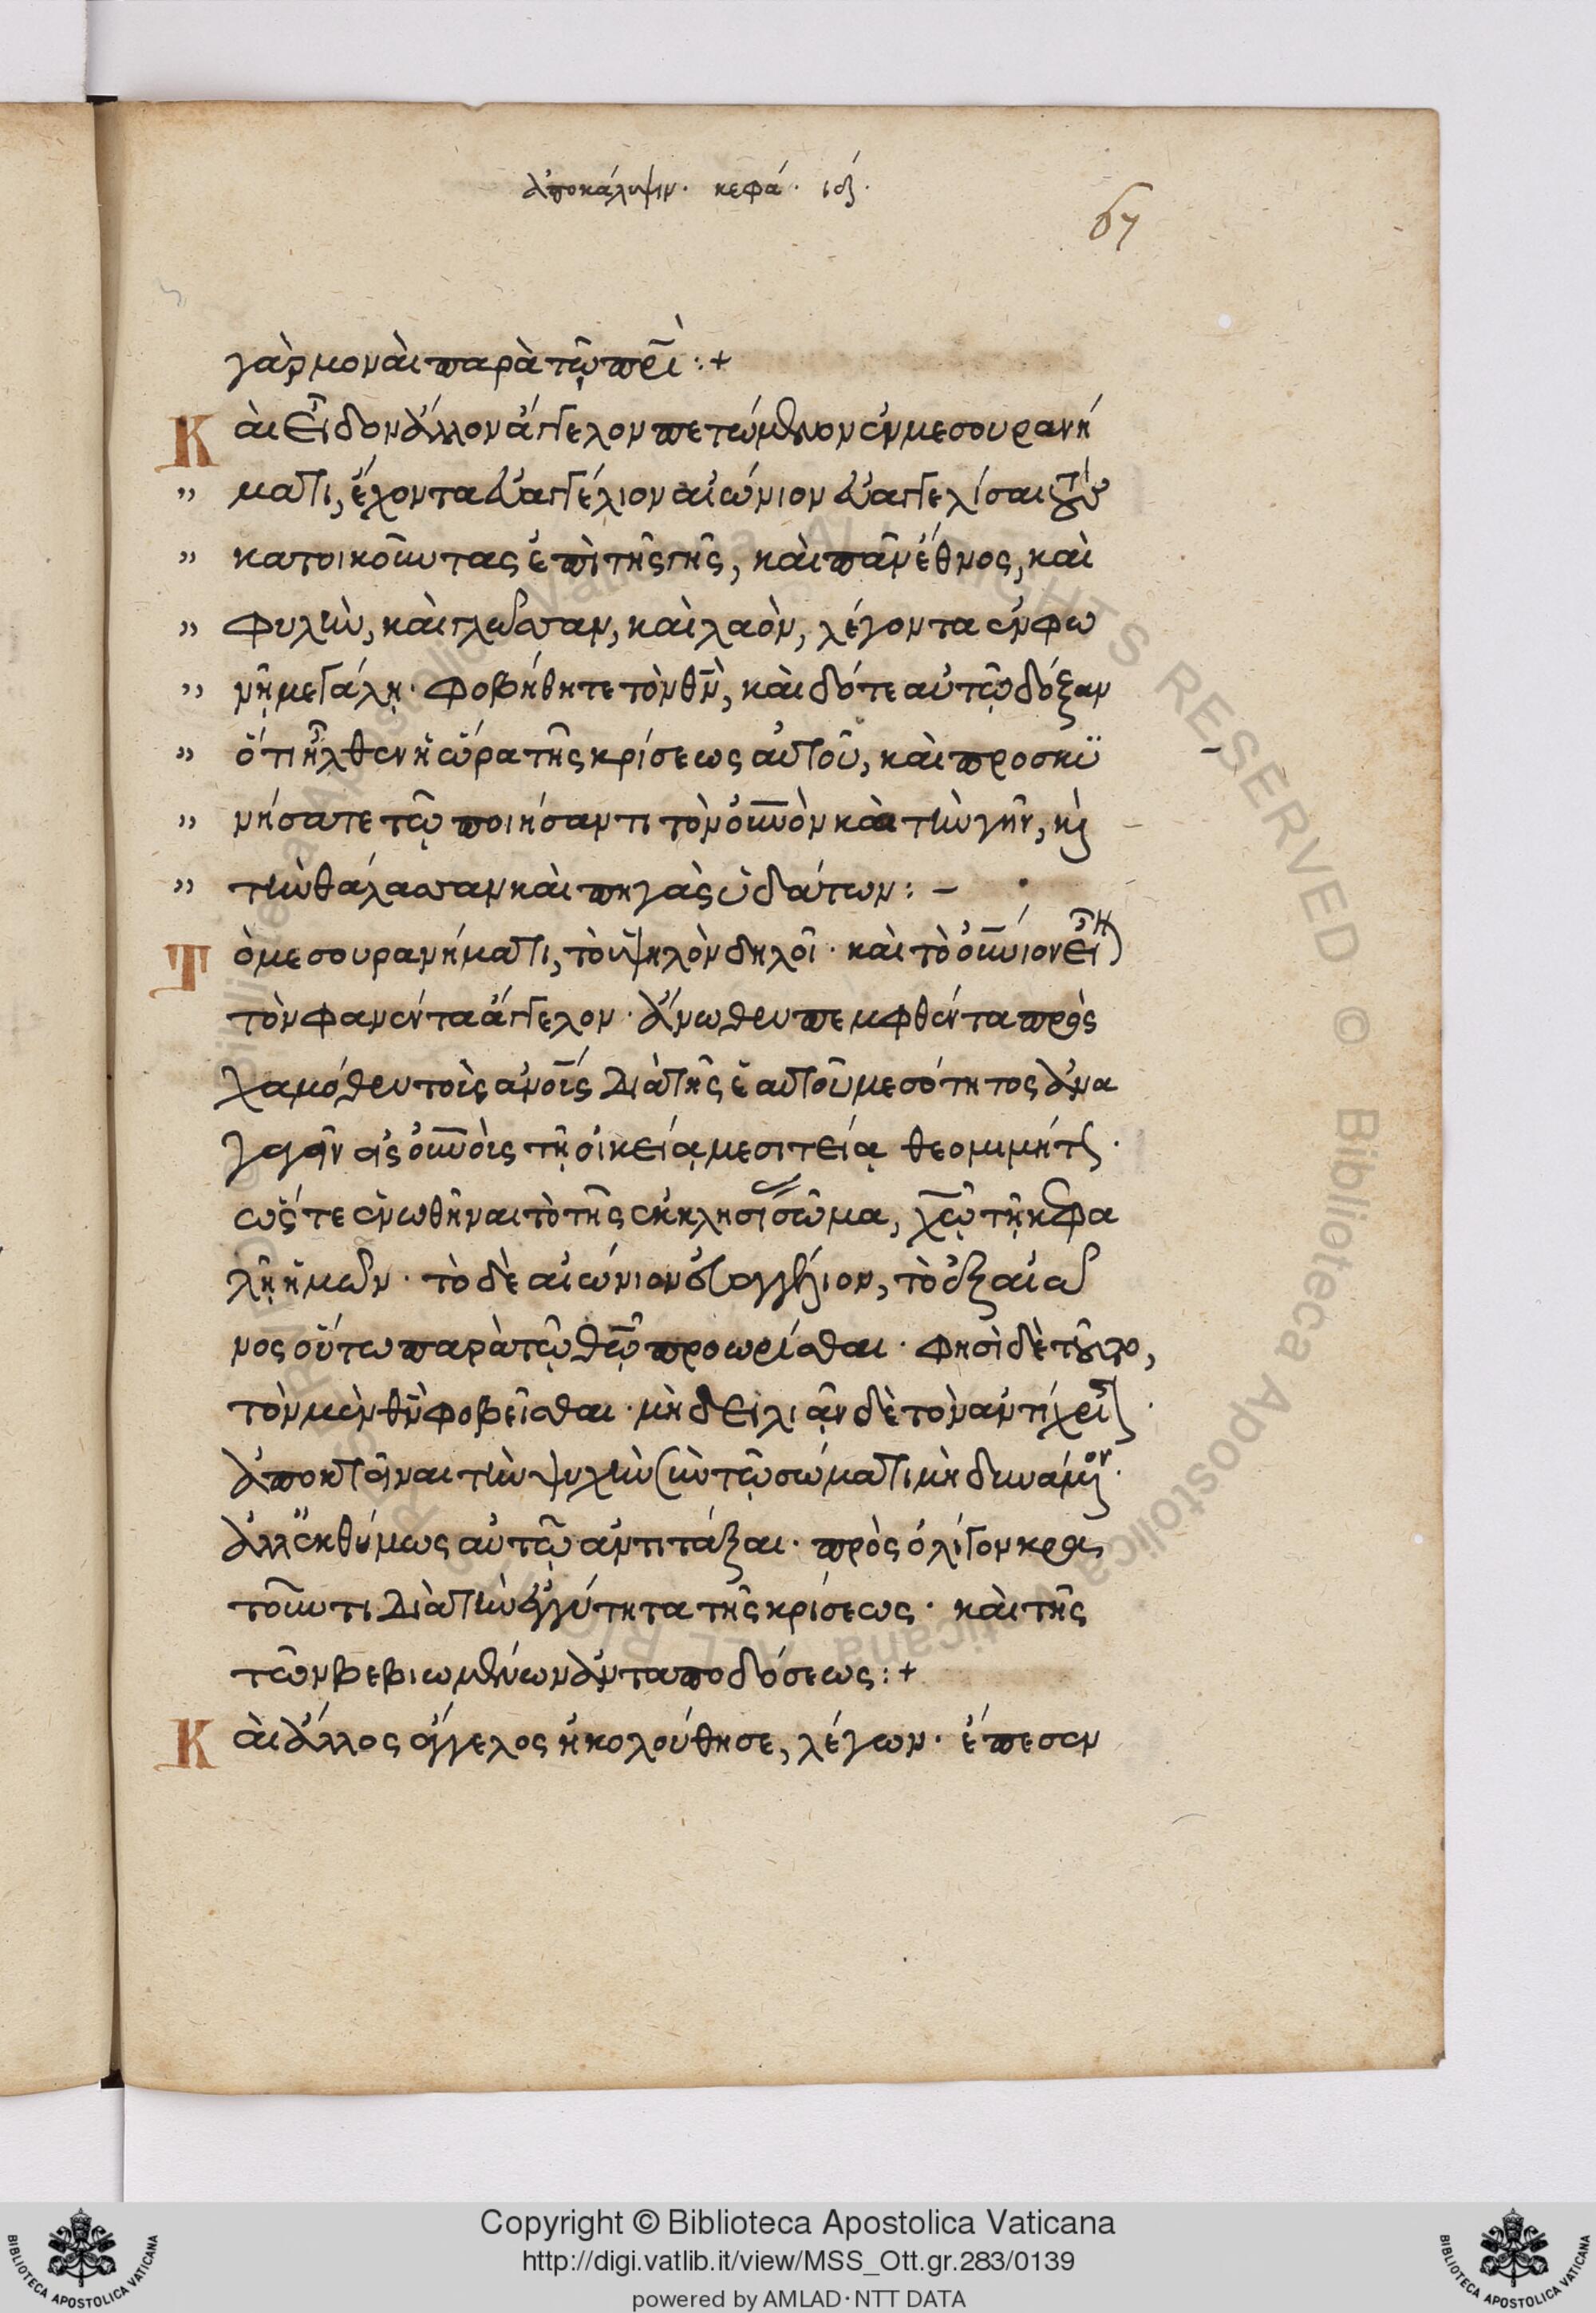 ἀποκάλυψιν· κεφά· ιδ·
67
γὰρ μοναὶ παρὰ τῷ πρῑ̀ :+
Καὶ εἶδον ἄλλον ἄγγελον πετώμενον ἐν μεσουρανή
" ματι, ἔχοντα εὐαγγέλιον αἰώνιον εὐαγγελίσαι τοὺς
" κατοικοῦντας ἐπὶ τῆς γῆς, καὶ πᾶν ἔθνος, καὶ
" φυλὴν, καὶ γλῶσσαν, καὶ λαὸν, λέγοντα ἐν φω
" νῇ μεγάλῃ· φοβήθητε τὸν θν̄, καὶ δότε αὐτῷ δόξαν
" ὅτι ἦλθεν ἡ ὥρα τῆς κρίσεως αὐτοῦ, καὶ προσκϋ
" νήσατε τῷ ποιήσαντι τὸν οὐνὸν καὶ τὴν γῆν, κὶ
" τὴν θάλασσαν καὶ πηγὰς ὑδάτων: –
Τὸ μεσουρανήματι, τὸ ὑψηλὸν δηλοῖ· καὶ τὸ οὐνιον εἶ
τὸν φανέντα ἄγγελον· ἄνωθεν πεμφθέντα πρὸς
χαμόθεν τοῖς ἀνοῖς διὰ τῆς ἑαυτοῦ μεσότητος ἀνα
γαγεῖν εἰς οὐνοὺς τῇ οἰκείᾳ μεσιτείᾳ θεομιμήτως·
ὥστε ἑνωθῆναι τὸ τῆς ἐκκλησίας σῶμα, χῶ τῇ κεφα
λῇ ἡμῶν· τὸ δὲ αἰώνιον εὐαγγέλιον, τὸ ἐξ αἰῶ
νος οὕτω παρὰ τῷ θῶ προωρίσθαι· φησὶ δὲ τοῦτο,
τὸν μὲν θν̄ φοβεῖσθαι· μὴ δειλιᾶν δὲ τὸν ἀντίχρι
ἀποκτεῖναι τὴν ψυχὴν σὺν τῷ σώματι μὴ δυνάμενον·
ἀλλ' ἐκθύμως αὐτῷ ἀντιτάξαι· πρὸς ὀλίγον κρα
τοῦντι διὰ τὴν ἐγγύτητα τῆς κρίσεως· καὶ τῆς
τῶν βεβιωμένων ἀνταποδόσεως :+
Καὶ ἄλλος ἄγγελος ἠκολούθησε, λέγων· ἔπεσεν
Copyright © Biblioteca Apostolica Vaticana
http://digi.vatlib.it/view/MSS_Ott.gr.283/0139
powered by AMLAD·NTT DATA
BIBLIOTECA APOSTOLICA VATICANA
BIBLIOTECA APOSTOLICA VATICANA